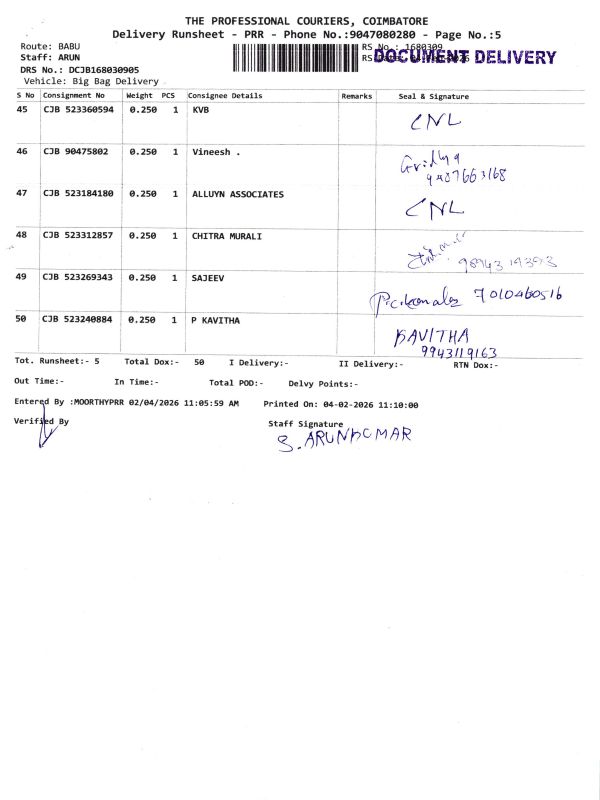 THE PROFESSIONAL COURIERS, COIMBATORE
Delivery Runsheet - PRR - Phone No.:9047080280 - Page No.:5
Route: BABU
RS No.: 1680309
Staff: ARUN
DOCUMENT DELIVERY
DRS No.: DCJB168030905
Vehicle: Big Bag Delivery
S No Consignment No Weight PCS Consignee Details Remarks Seal & Signature
45 CJB 523360594 0.250 1 KVB CNL
46 CJB 90475802 0.250 1 Vineesh .
47 CJB 523184180 0.250 1 ALLUYN ASSOCIATES CNL
48 CJB 523312857 0.250 1 CHITRA MURALI
49 CJB 523269343 0.250 1 SAJEEV 7010460516
50 CJB 523240884 0.250 1 P KAVITHA KAVITHA
9943119163
Tot. Runsheet:- 5 Total Dox:- 50 I Delivery:- II Delivery:- RTN Dox:-
Out Time:- In Time:- Total POD:- Delvy Points:-
Entered By :MOORTHYPRR 02/04/2026 11:05:59 AM Printed On: 04-02-2026 11:10:00
Verified By Staff Signature
S. ARUNKUMAR